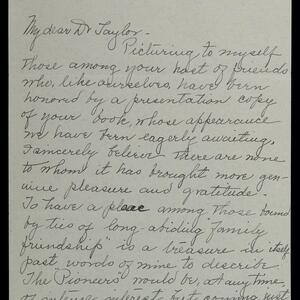 My dear Dr Taylor -
Picturing to myself
those among your host of friends
who, like ourselves, have been
honored by a presentation copy
of your book, whose appearance
we have been eagerly awaiting,
I sincerely believe there are none
to whom it has brought more gen-
uine pleasure and gratitude -
To have a place among those bound
by ties of long abiding "family
friendship" is a treasure in itself
past words of mine to describe
"The Pioneers" would be, at any time
of intense interest, but coming just